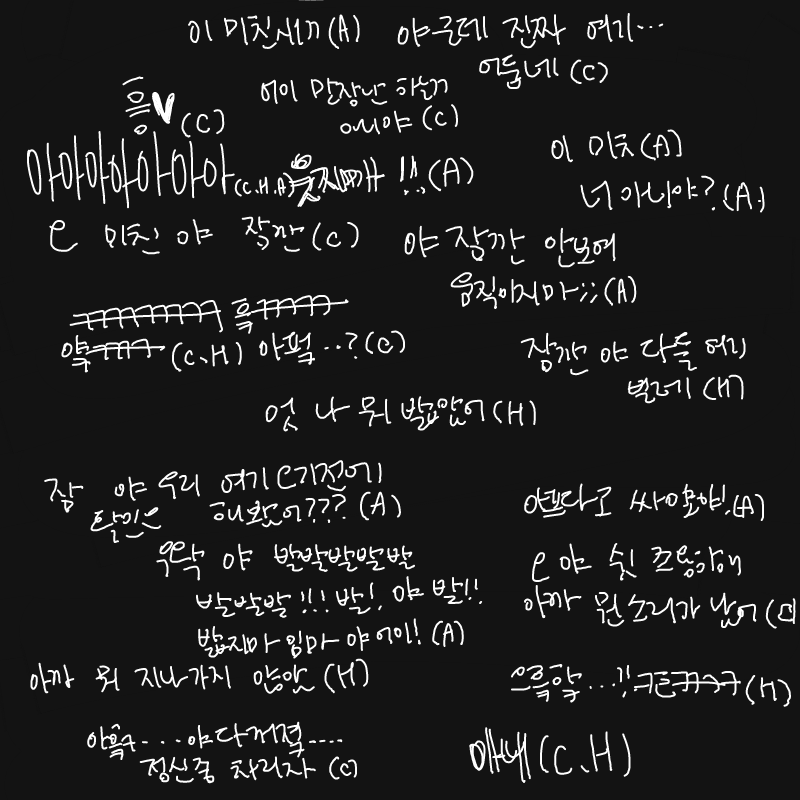 이 미친새끼(A) 야근데 진짜 여기...
어둡네(C)
어이 말장난 하는거
아니야(C)
흥♥(C)
아아아아아아아(C.H.A) 웃지마!!(A)
이 미친(A)
너 아니야?(A)
미친 야 잠깐(C)
야 잠깐 안보여
움직이지마;;(A)
(C.H) 아퍽..?(C)
잠깐 야 다들 여기
벌레(H)
엇 나 뭐 밟았어(H)
잠 야 우리 여기 전에
탈인은 해봤어???(A)
싸이포야!(A)
우악 야 발발발발발
발발발!!!발!야 발!!
밟지마 임마 야 어이!(A)
야 쉿 조용히해
아까 뭔소리가 났어
아까 뭐 지나가지 않았(H)
으륵핡...!!(H)
야다꺼져....
정신줄 차리자(C)
애네(C.H)